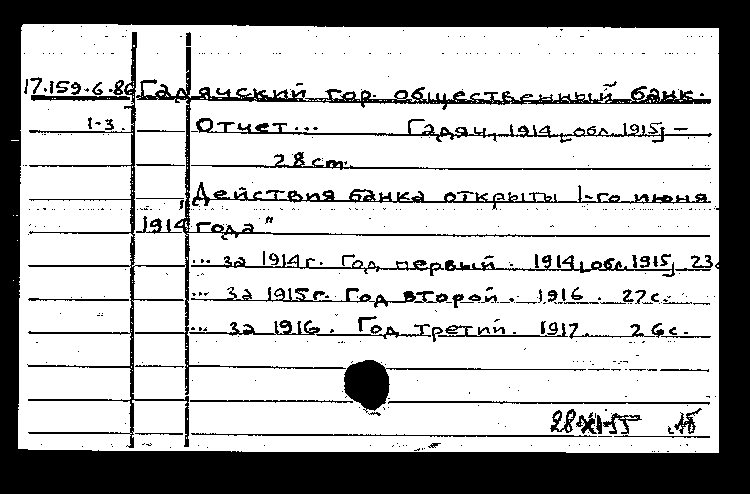 17.159.6.86 Гадячский гор. общественный банк.
1-3. Отчет... Гадяч, 1914 [обл. 1915] –
28 cm.
„Действия банка открыты 1-го июня
1914 года"
... за 1914 г. Год первый. 1914 [обл. 1915] 23с
... за 1915 г. Год второй. 1916. 27 с.
... за 1916. Год третий. 1917. 26 с.
28-XI-55